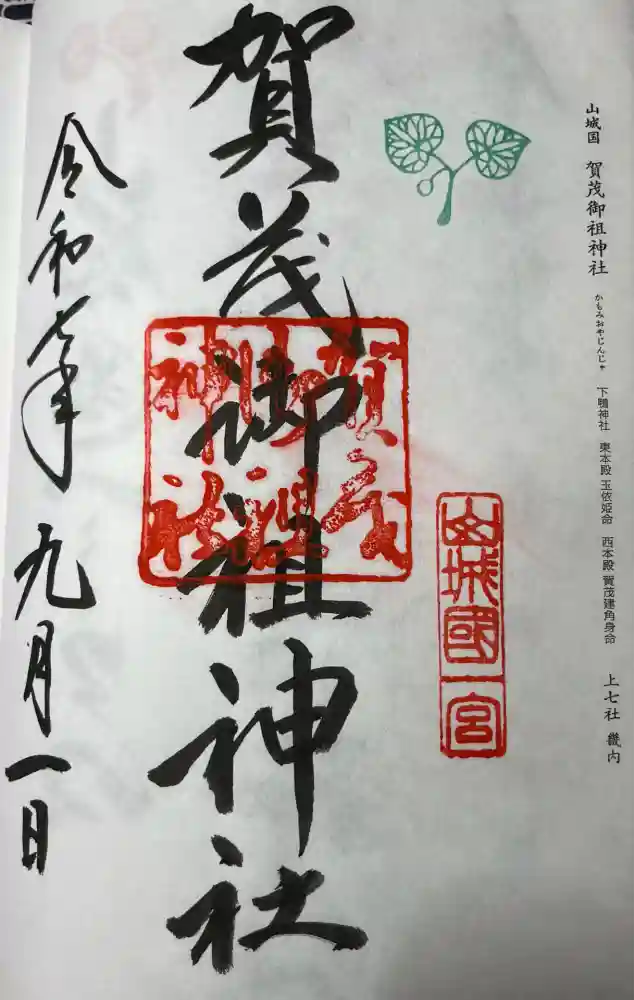 山城国 賀茂御祖神社 かもみおやじんじゃ 下鴨神社 東本殿 玉依姫命 西本殿 賀茂建角身命 上七社 畿内
山城國一宮
賀茂御祖神社
賀茂
御祖
神社
令和七年九月一日